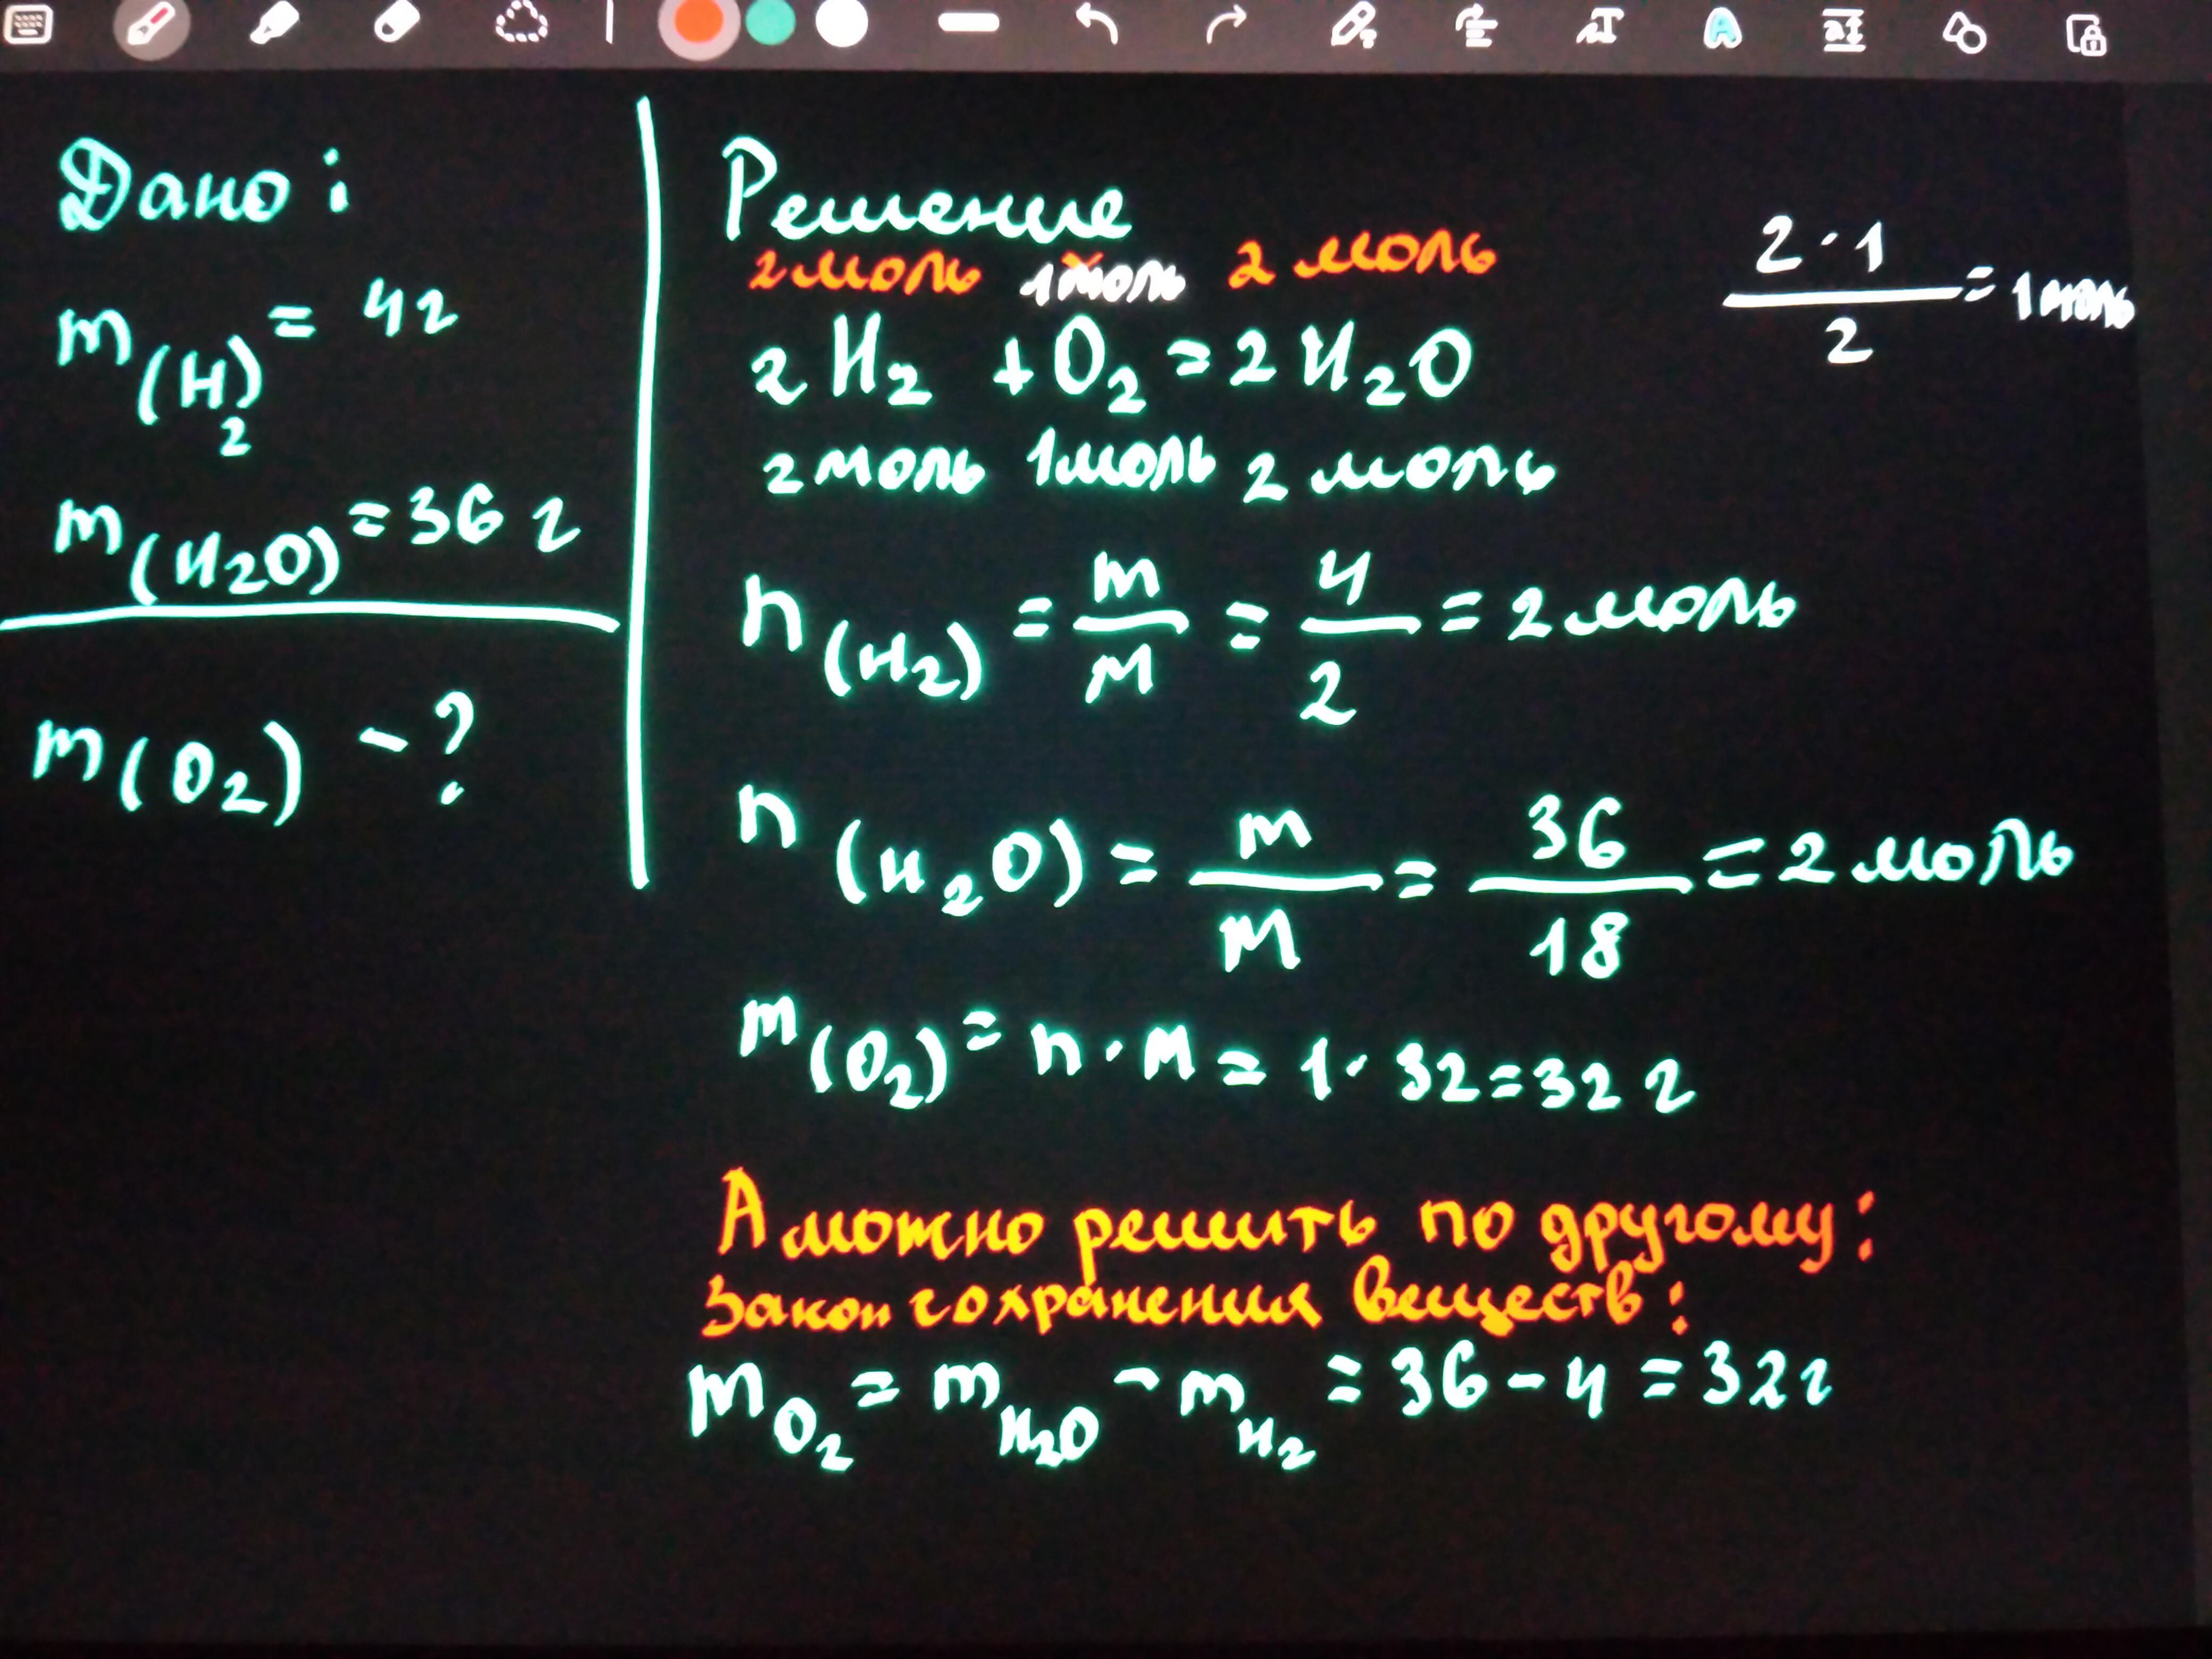 Дано:
m(H2) = 4г
m(H2O) = 36 г
m(O2) - ?
Решение
2 моль 1 моль 2 моль
2 · 1 / 2 = 1 моль
2H2 + O2 = 2H2O
2 моль 1 моль 2 моль
n(H2) = m/M = 4/2 = 2 моль
n(H2O) = m/M = 36/18 = 2 моль
m(O2) = n · M = 1 · 32 = 32 г
А можно решить по другому:
Закон сохранения веществ:
mO2 = mH2O - mH2 = 36 - 4 = 32г